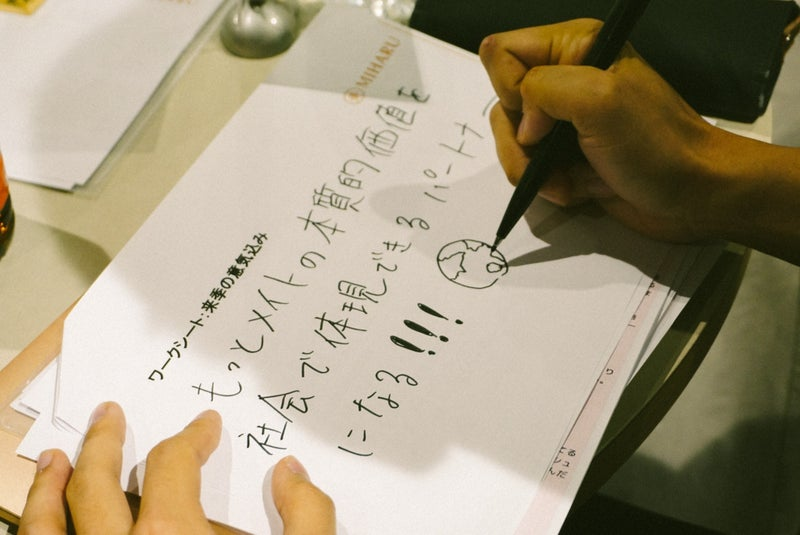 MIHARU
ワークシート:来季の意気込み
もっとメイトの本質的価値を
社会で体現できるパートナー
になる!!!